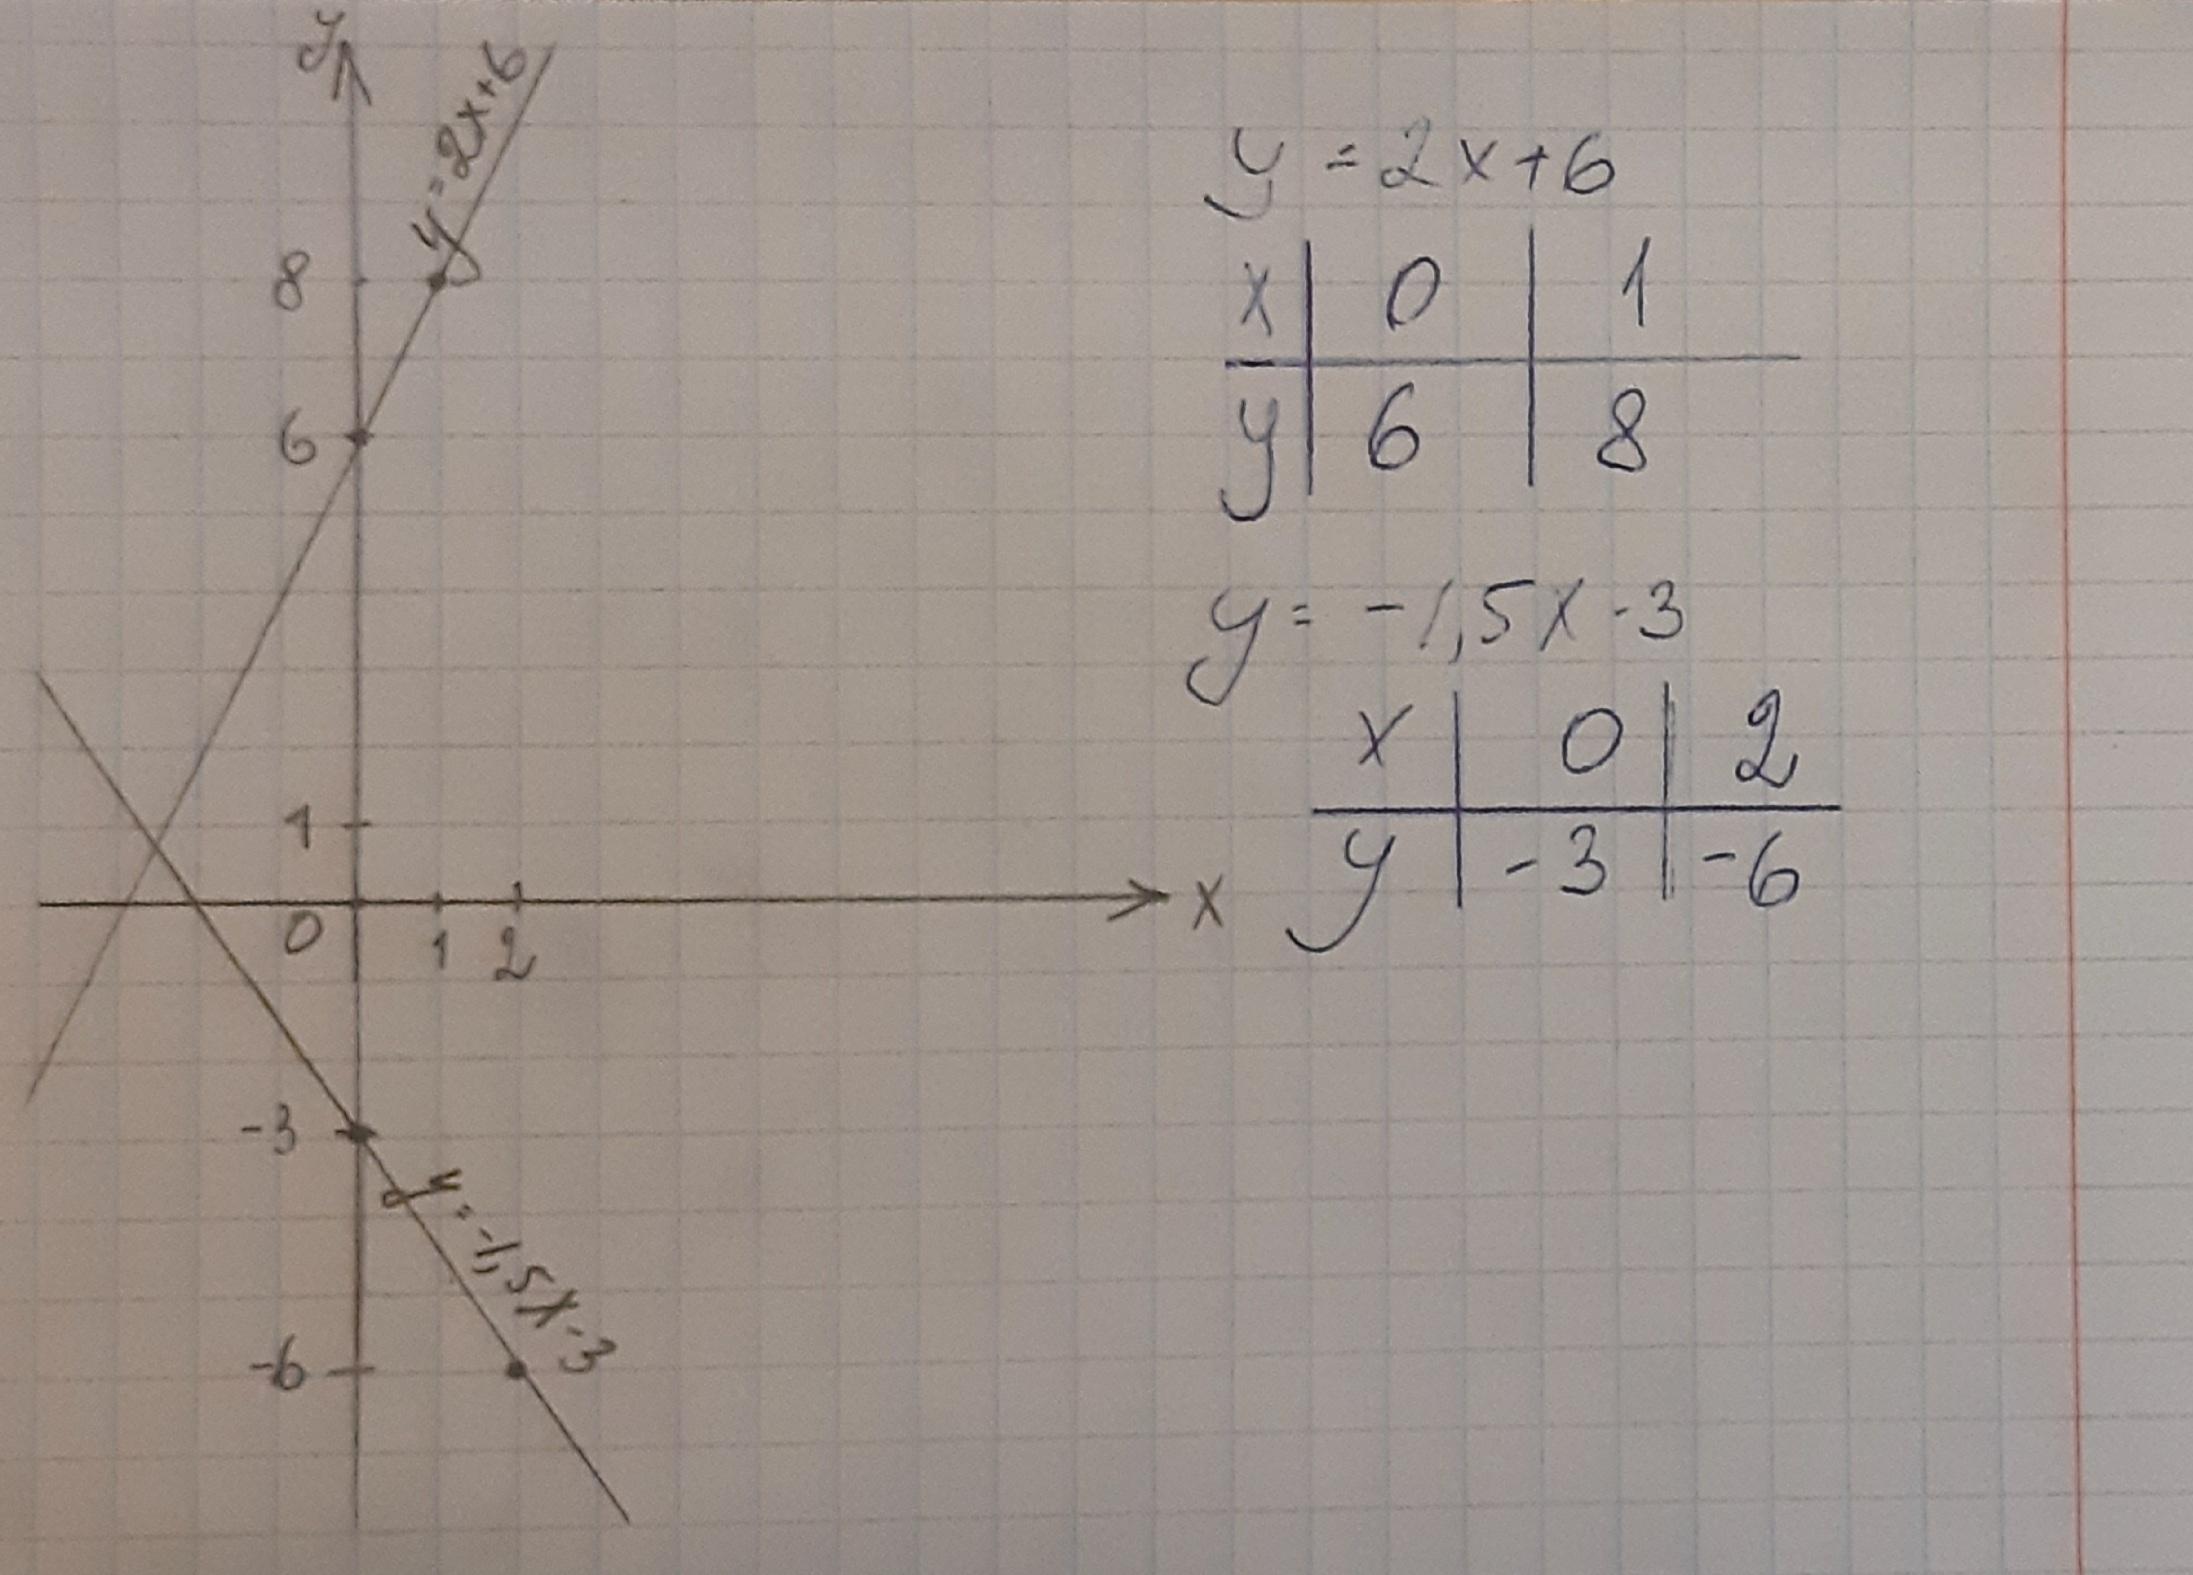 y
y=2x+6
8
6
1
0
1 2
x
-3
y=-1,5x-3
-6
y=2x+6
x 0 1
y 6 8
y=-1,5x-3
x 0 2
y -3 -6